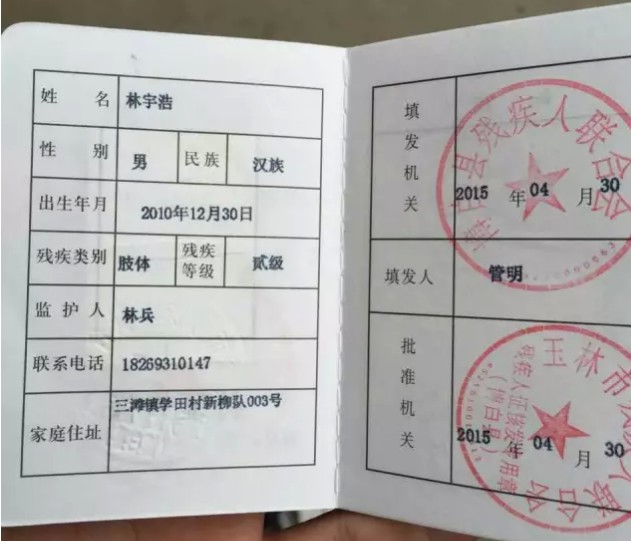 姓 名 林宇浩
性 别 男 民族 汉族
出生年月 2010年12月30日
残疾类别 肢体 残疾等级 贰级
监护人 林兵
联系电话 18269310147
家庭住址 三滩镇学田村新柳队003号
填发机关
县残疾人联合会
2015 年 04 月 30
填发人 管明
批准机关
玉林市残疾人联合会
残疾人证核发专用章
(博白县)
2015 年 04 月 30